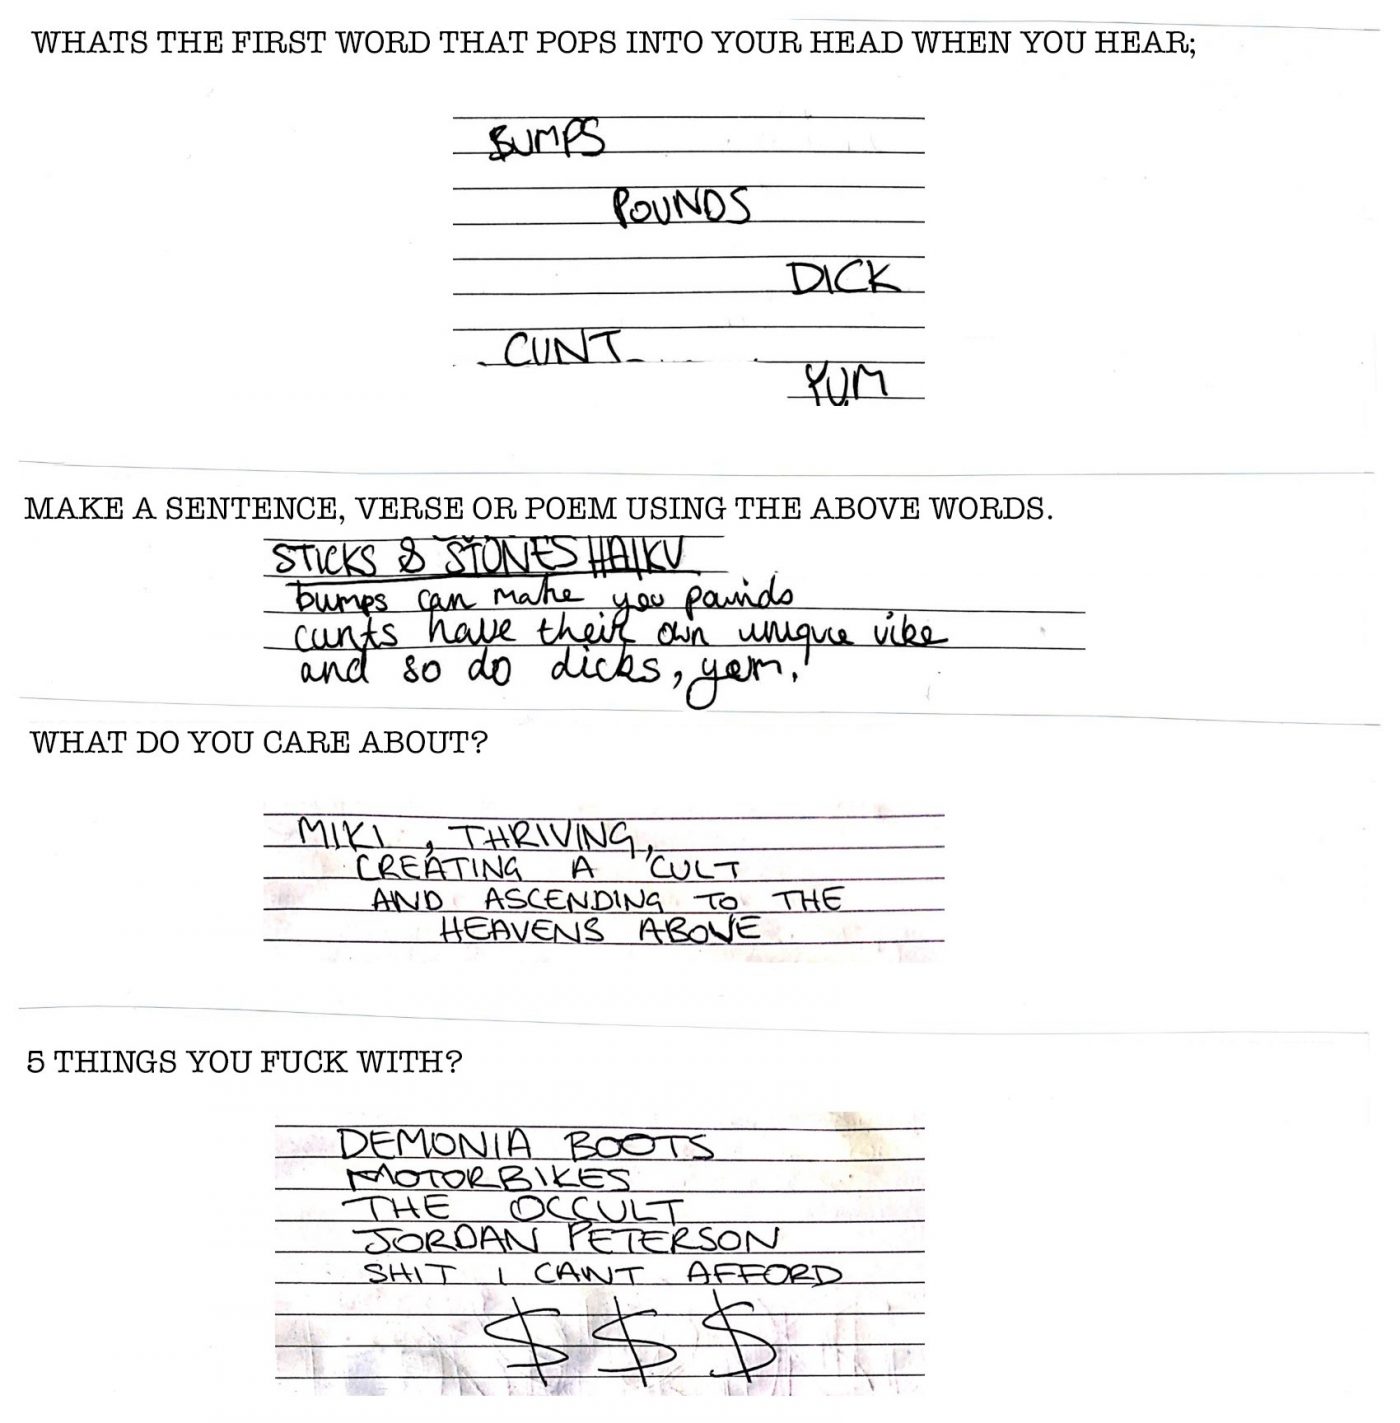 WHATS THE FIRST WORD THAT POPS INTO YOUR HEAD WHEN YOU HEAR;
BUMPS
POUNDS
DICK
CUNT
YUM
MAKE A SENTENCE, VERSE OR POEM USING THE ABOVE WORDS.
STICKS & STONES HAIKU
bumps can make you pounds
cunts have their own unique vibe
and so do dicks, yum.
WHAT DO YOU CARE ABOUT?
MIKI, THRIVING,
CREATING A CULT
AND ASCENDING TO THE
HEAVENS ABOVE
5 THINGS YOU FUCK WITH?
DEMONIA BOOTS
MOTORBIKES
THE OCCULT
JORDAN PETERSON
SHIT I CANT AFFORD
$ $ $